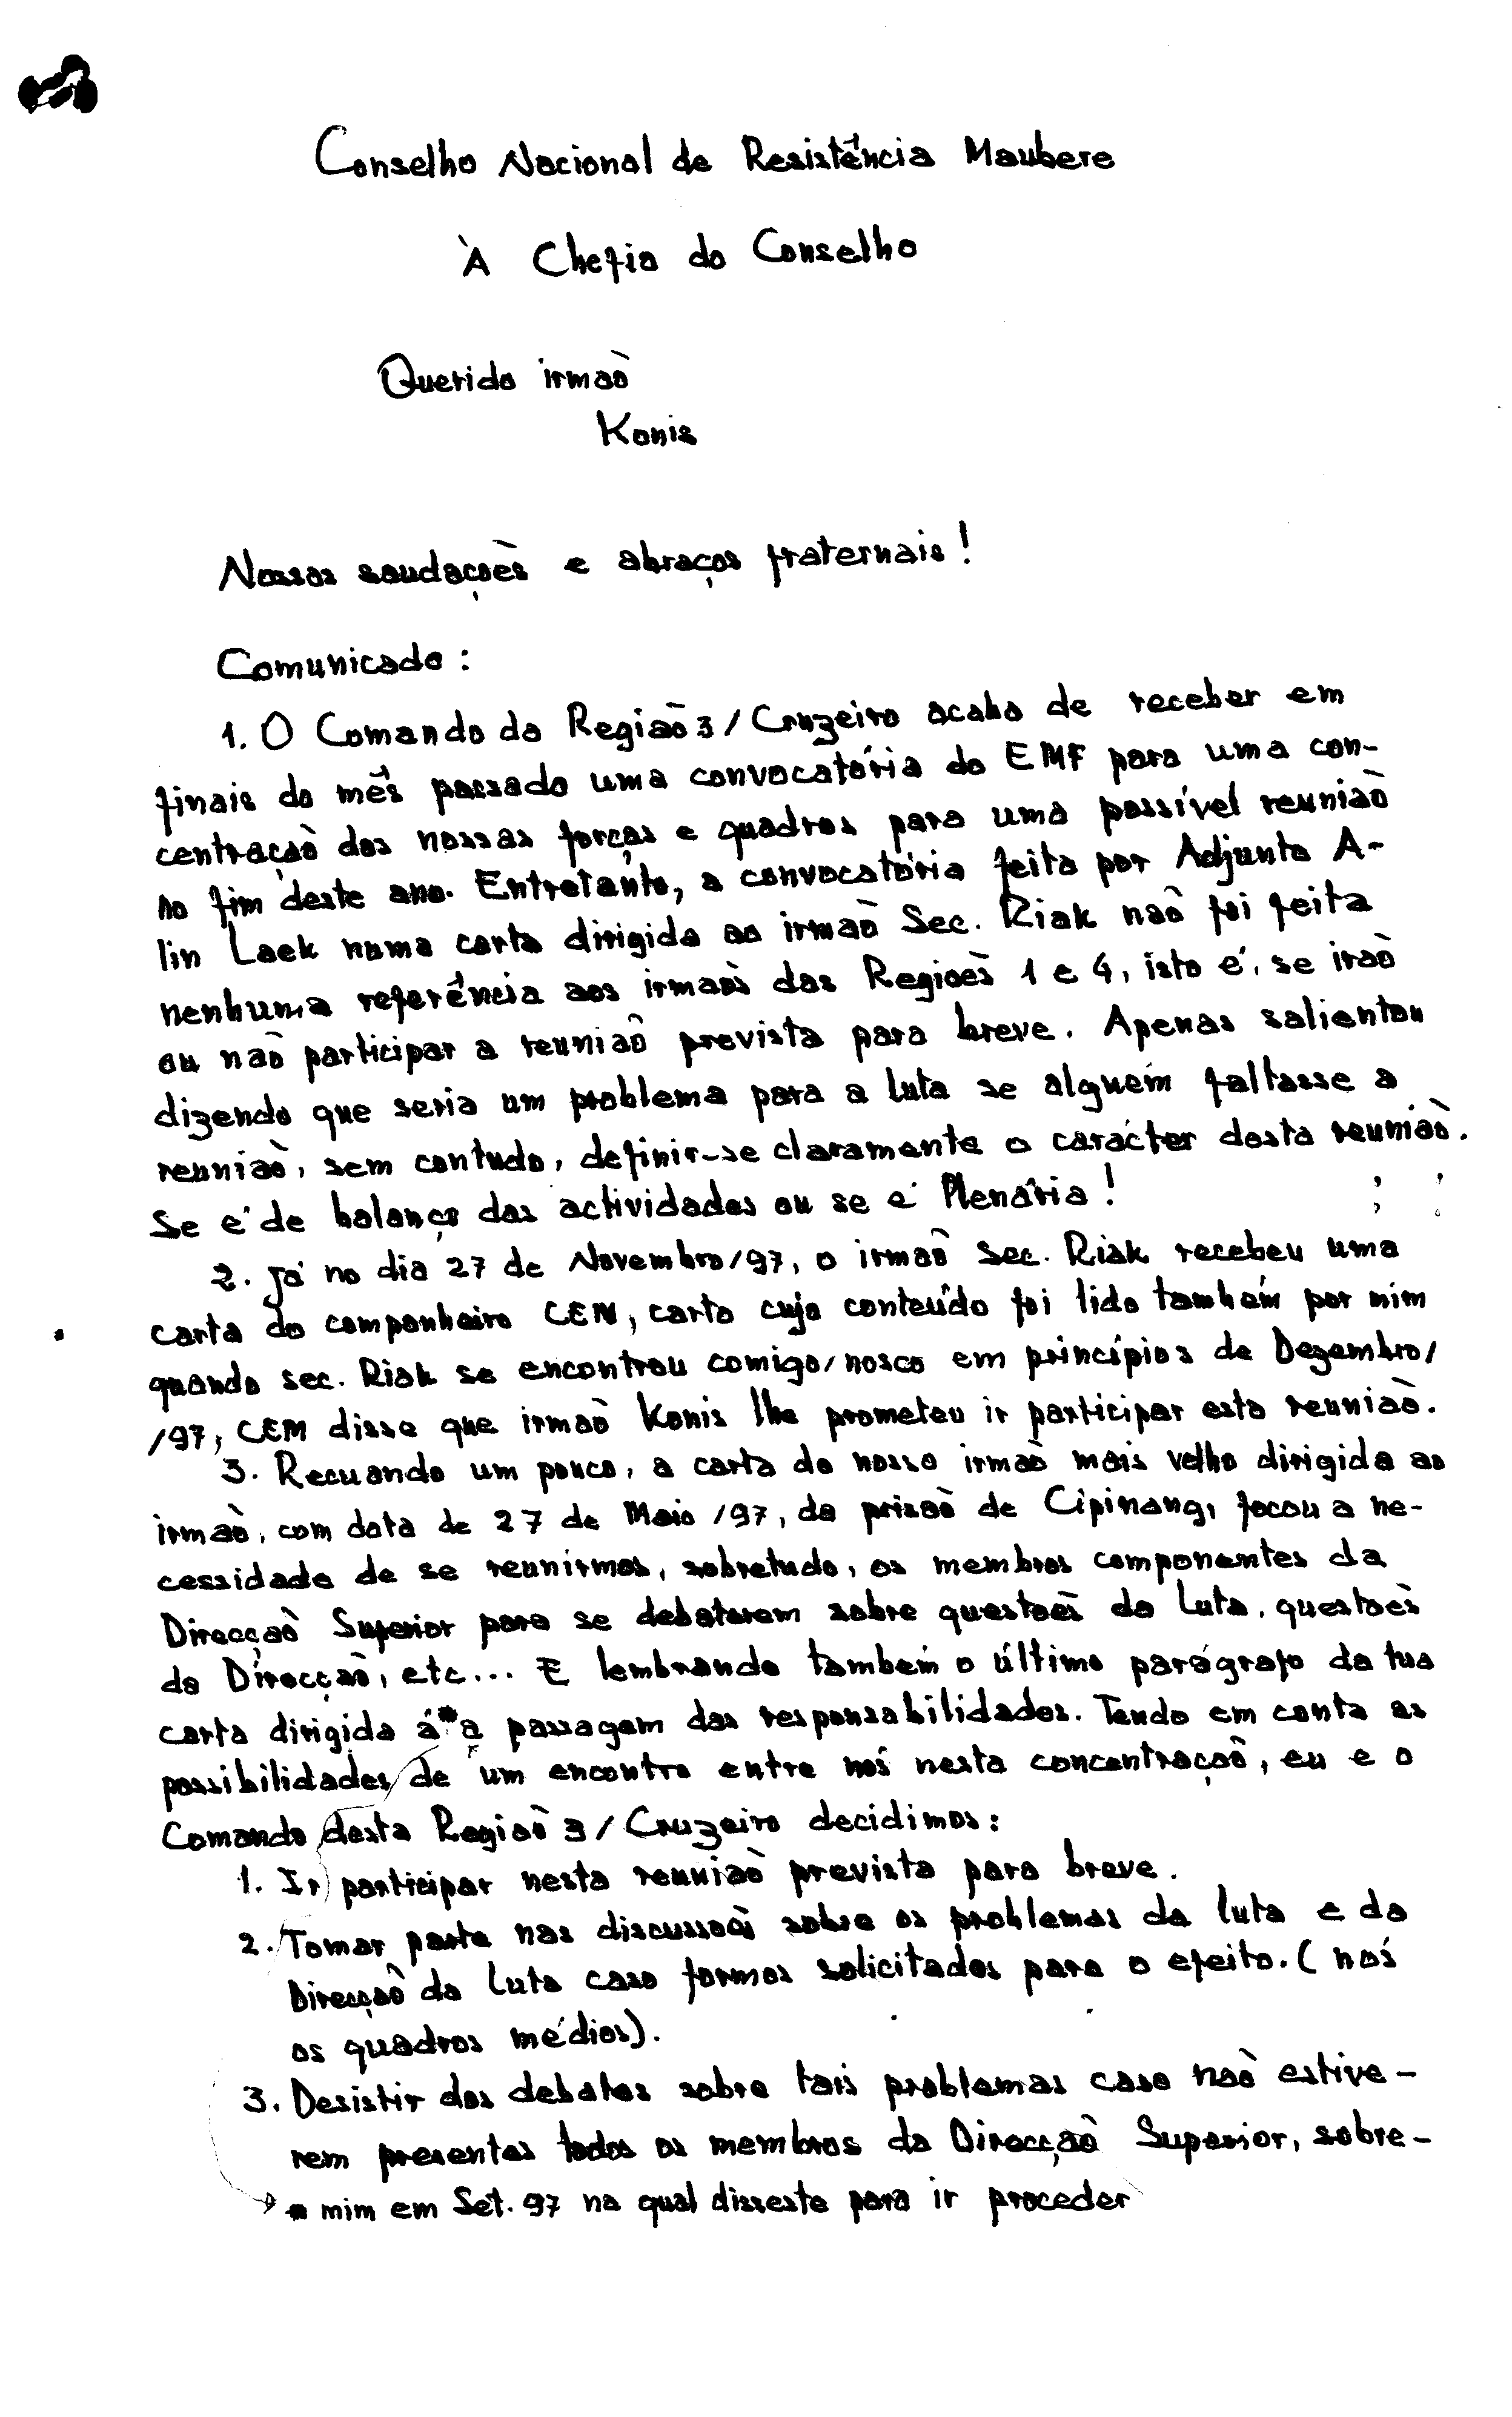 Conselho Nacional de Resistência Maubere
À Chefia do Conselho
Querido irmaõ
Konis
Nossas saudaçoẽs e abraços fraternais!
Comunicado:
1. O Comando da Regiaõ 3/Cruzeiro acaba de receber em
finais do mês passado uma convocatória do EMF para uma con-
centraçaõ das nossas forças e quadros para uma possível reuniaõ
no fim deste ano. Entretanto, a convocatória feita por Adjunto A-
lin Laek numa carta dirigida ao irmaõ Sec. Riak naõ foi feita
nenhuma referência aos irmaõs das Regioẽs 1 e 4, isto é, se iraõ
ou naõ participar a reuniaõ prevista para breve. Apenas salientou
dizendo que seria um problema para a luta se alguém faltasse a
reuniaõ, sem contudo, definir-se claramente o carácter desta reuniaõ.
Se é de balanço das actividades ou se é Plenária!
2. Já no dia 27 de Novembro/97, o irmaõ Sec. Riak recebeu uma
carta do companheiro CEM, carta cujo conteúdo foi lido também por mim
quando sec. Riak se encontrou comigo/nosco em princípios de Dezembro/
/97, CEM disse que irmaõ Konis lhe prometeu ir participar esta reuniaõ.
3. Recuando um pouco, a carta do nosso irmaõ mais velho dirigida ao
irmaõ, com data de 27 de Maio/97, da prisaõ de Cipinang, focou a ne-
cessidade de se reunirmos, sobretudo, os membros componentes da
Direcçaõ Superior para se debaterem sobre questoẽs da Luta, questoẽs
da Direcçaõ, etc... E lembrando também o último parágrafo da tua
carta dirigida á a passagem das responsabilidades. Tendo em conta as
possibilidades de um encontro entre nós nesta concentraçaõ, eu e o
Comando desta Regiaõ 3/Cruzeiro decidimos:
1. Ir participar nesta reuniaõ prevista para breve.
2. Tomar parte nas discussoẽs sobre os problemas da luta e da
Direcçaõ da Luta caso formos solicitados para o efeito. (nós
os quadros médios).
3. Desistir dos debates sobre tais problemas caso naõ estive-
rem presentes todos os membros da Direcçaõ Superior, sobre-
mim em Set. 97 na qual disseste para ir proceder